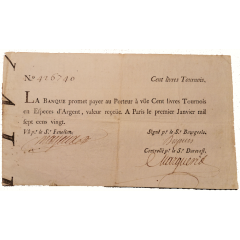 N.º 416746 Cent livres Tournois.
LA BANQUE promet payer au Porteur à vüe Cent livres Tournois
en Especes d'Argent, valeur reçeüe. A Paris le premier Janvier mil
sept cens vingt.
Vû p.r le S.r Fenellon. Signé p.r le S.r Bourgeois.
Controllé p.r le S.r Durevest.